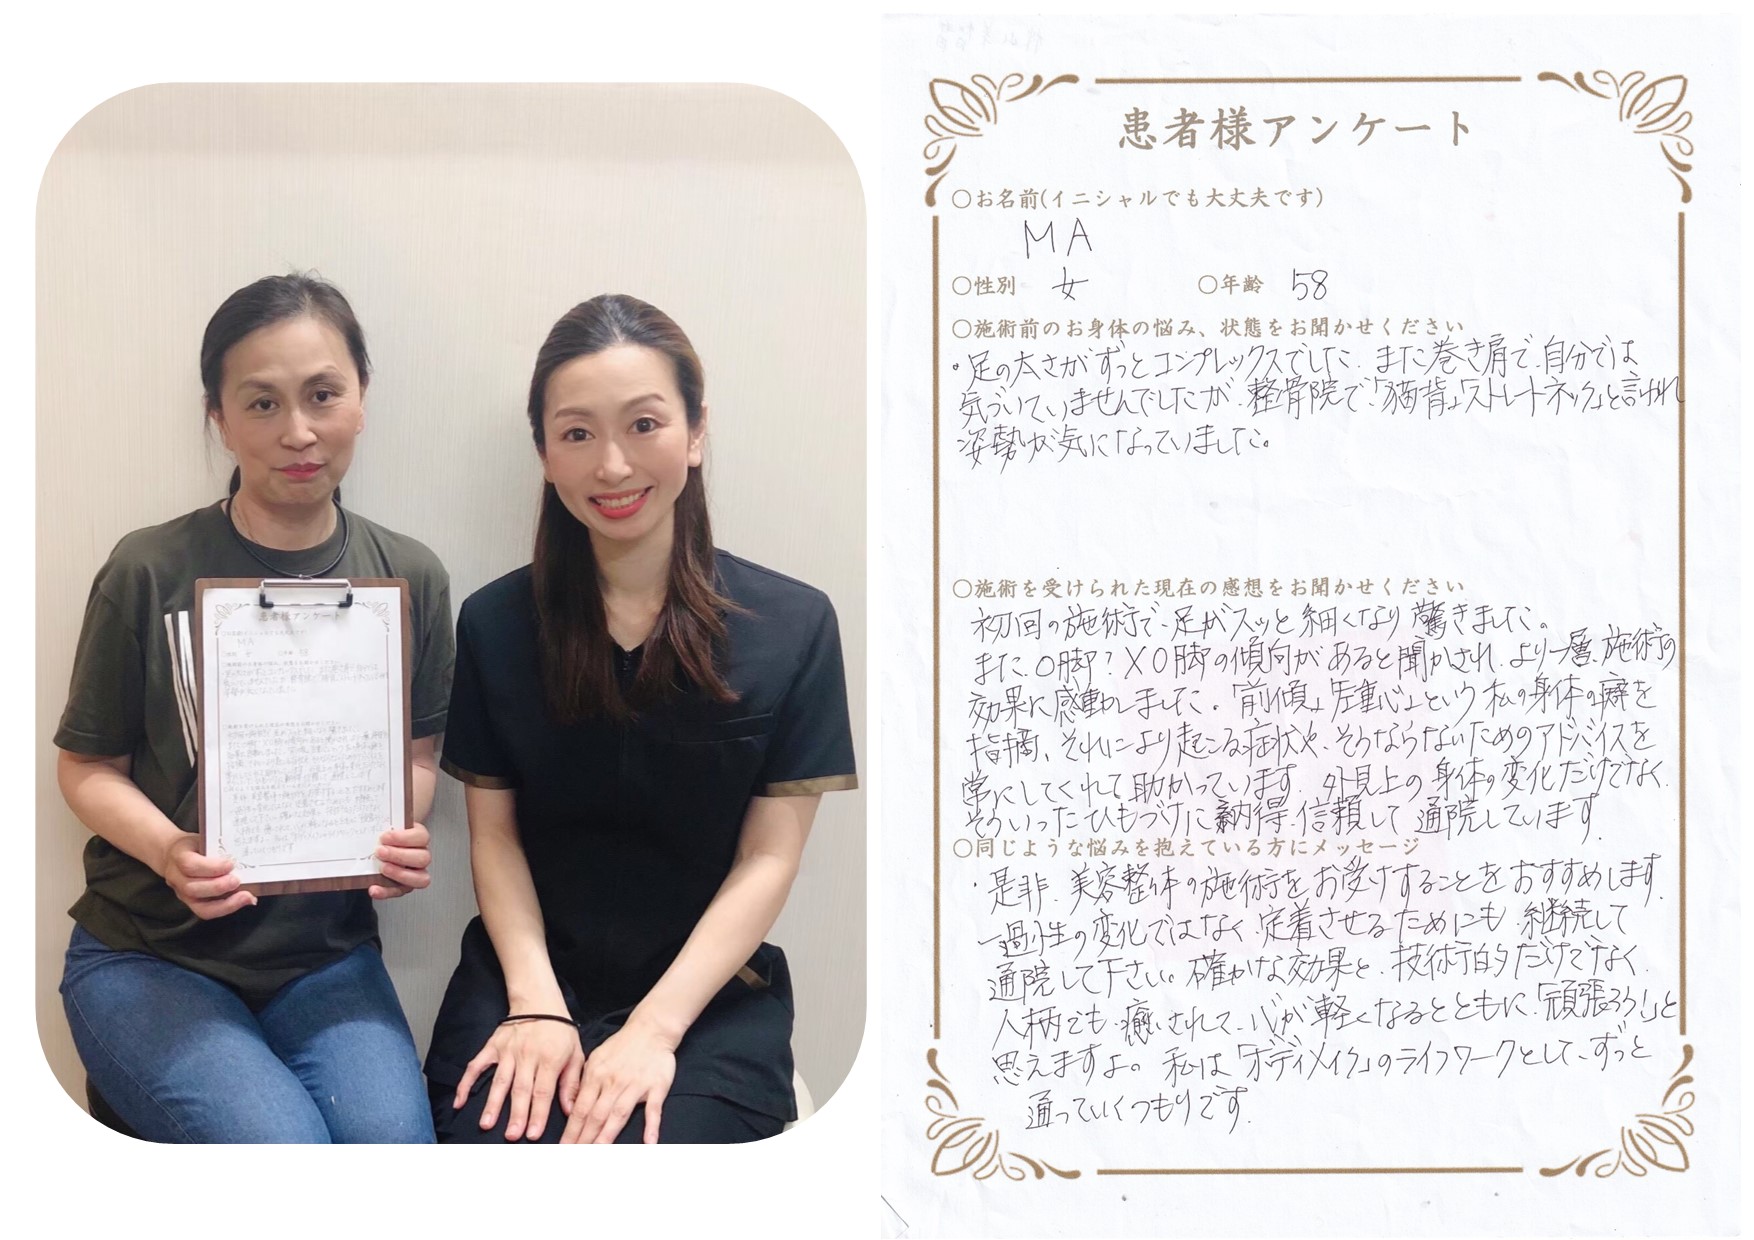 患者様アンケート
○お名前(イニシャルでも大丈夫です)
MA
○性別 女 ○年齢 58
○施術前のお身体の悩み、状態をお聞かせください
・足の太さがずっとコンプレックスでした。また巻き肩で、自分では
気づいていませんでしたが、整骨院で「猫背」「ストレートネック」と言われ
姿勢が気になっていました。
○施術を受けられた現在の感想をお聞かせください
初回の施術で、足がスッと細くなり驚きました。
また、O脚?XO脚の傾向があると聞かされ、より一層、施術の
効果に感動しました。「前傾」「左重心」という私の身体の癖を
指摘、それにより起こる症状や、そうならないためのアドバイスを
常にしてくれて助かっています。外見上の身体の変化だけでなく、
そういったひもづけに納得、信頼して通院しています。
○同じような悩みを抱えている方にメッセージ
・是非、美容整体の施術をお受けすることをおすすめします。
一過性の変化ではなく、定着させるためにも、継続して
通院して下さい。確かな効果と、技術的だけでなく、
人柄でも癒されて、心が軽くなるとともに、「頑張ろう!」と
思えますよ。私は「ボディメイク」のライフワークとして、ずっと
通っていくつもりです。